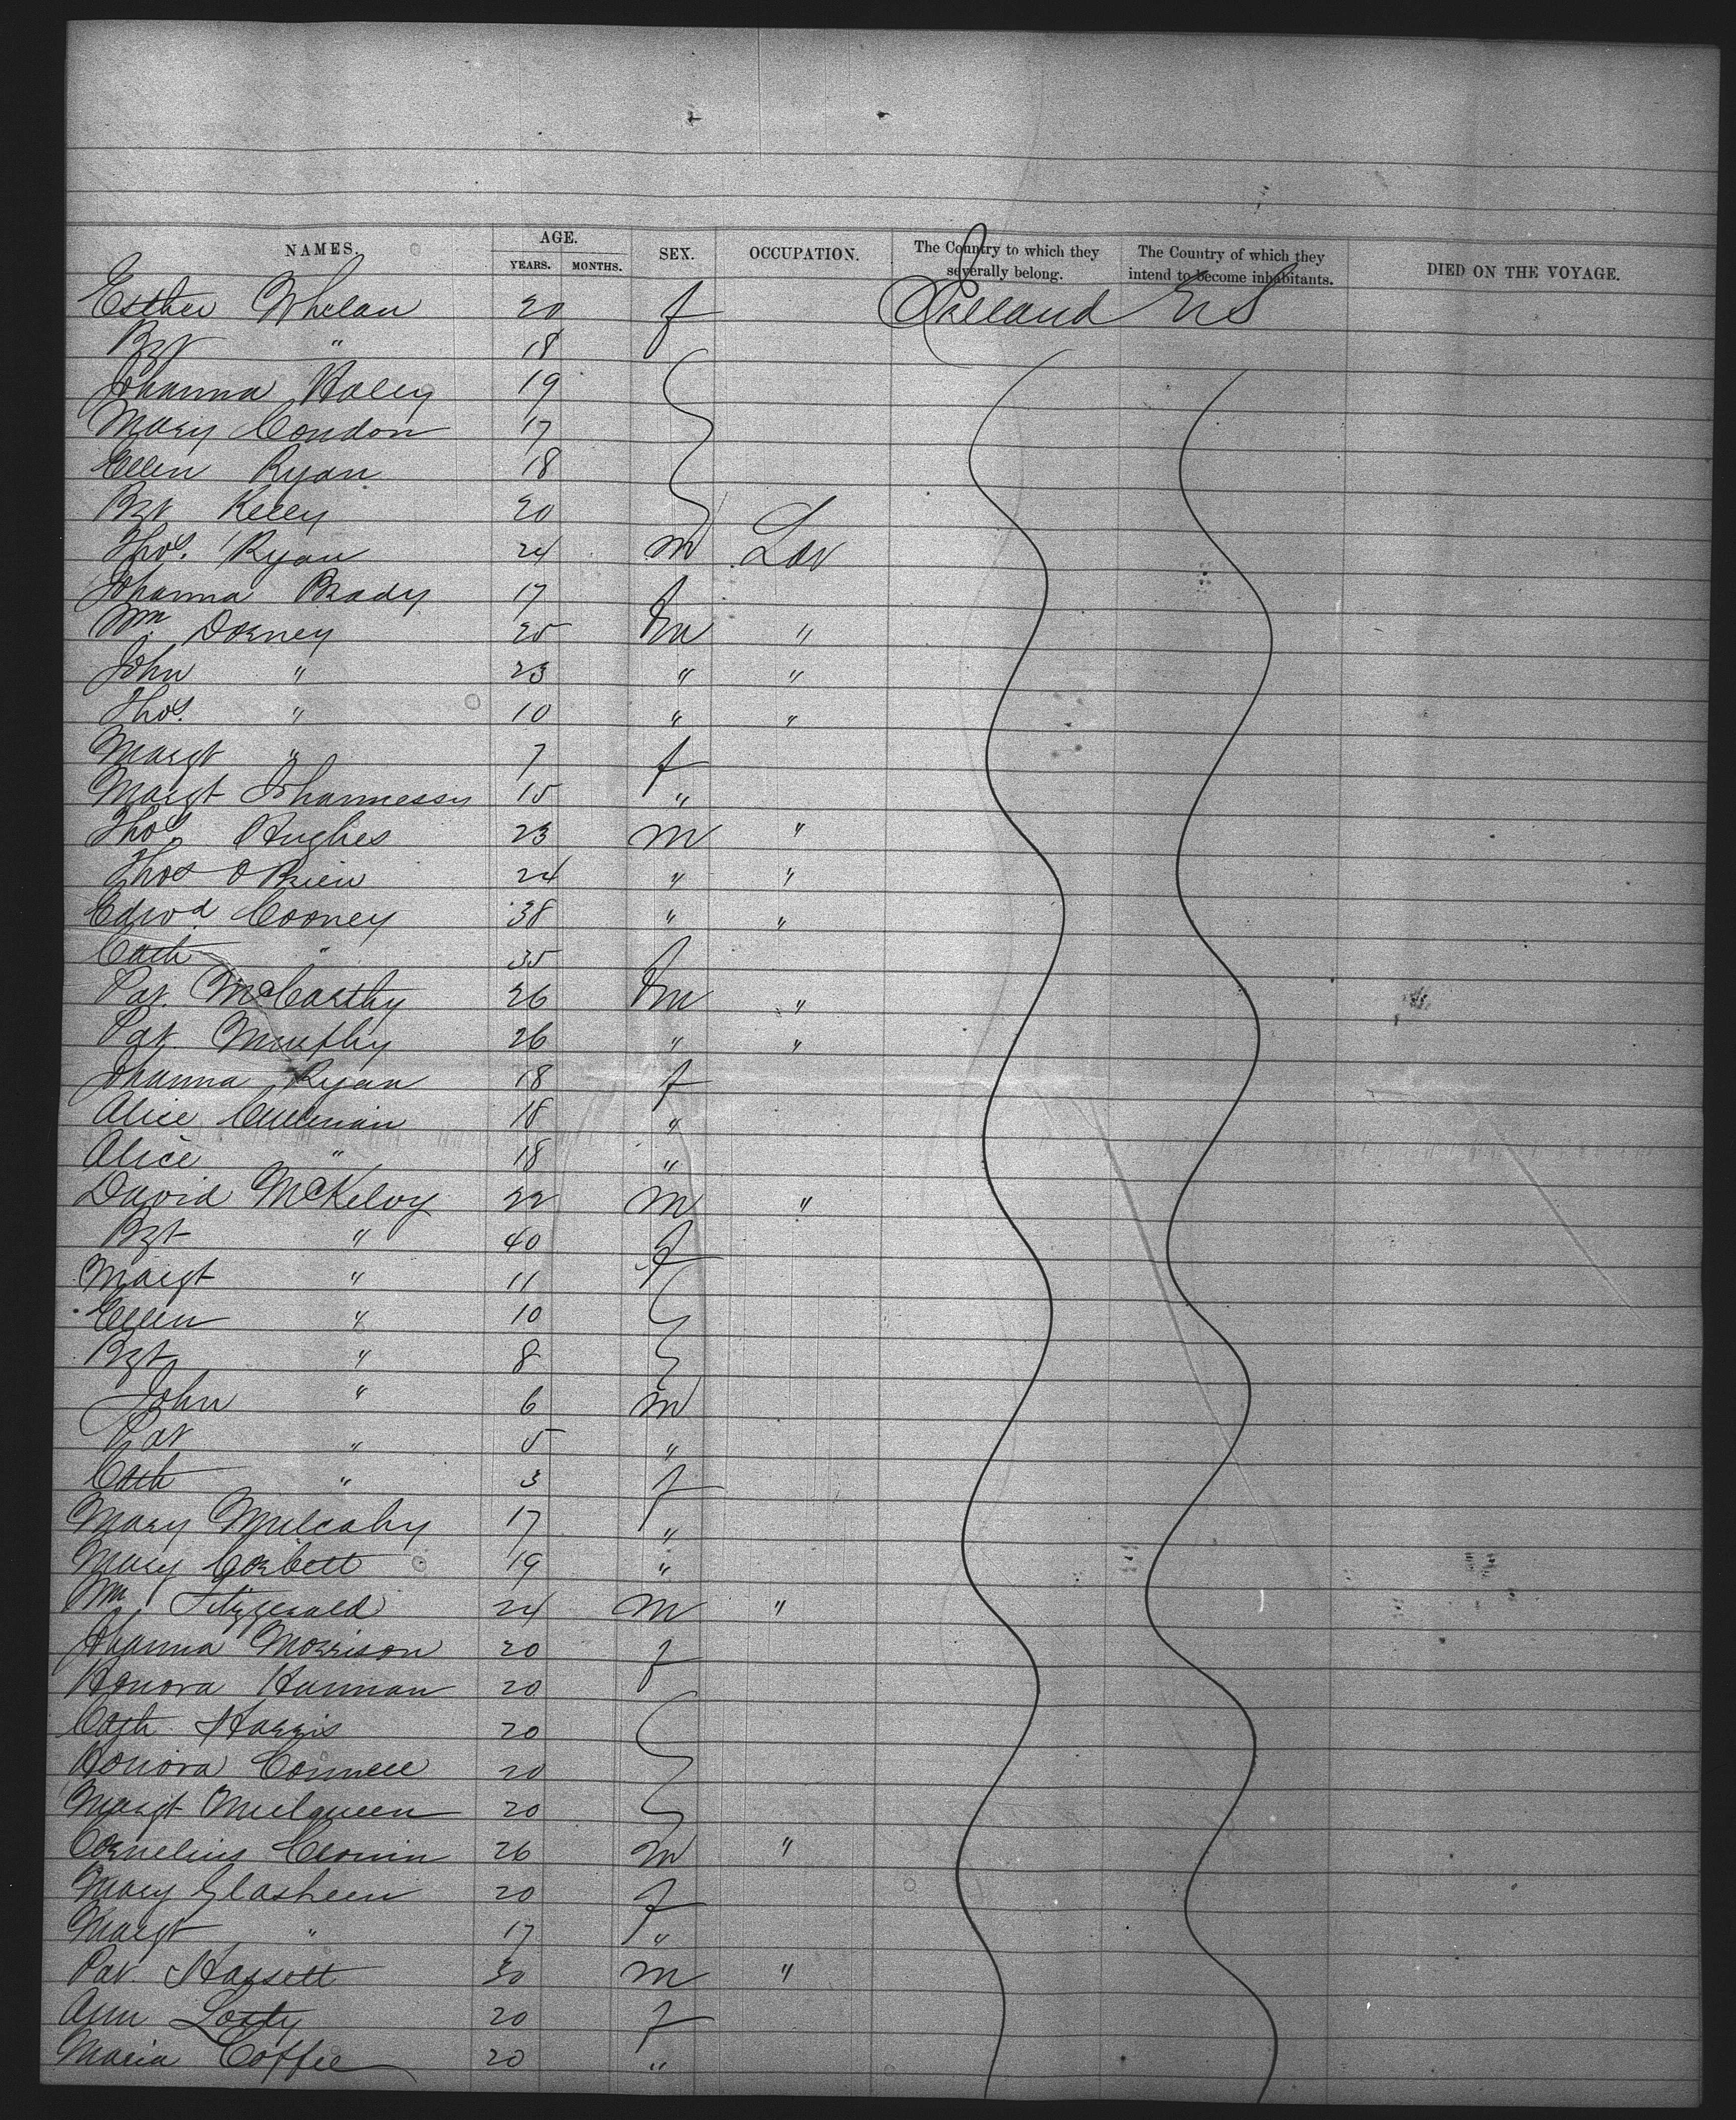 NAMES. AGE. SEX. OCCUPATION. The Country to which they severally belong. The Country of which they intend to become inhabitants. DIED ON THE VOYAGE.
YEARS. MONTHS.
Esther Whelan 20 f Ireland U S
Bgt " 18
Johanna Haley 19
Mary Condon 17
Ellen Ryan 18
Bgt Kelly 20
Thos. Ryan 24 m Lab
Johanna Brady 17 f
Wm Dorney 25 m "
John " 23 " "
Thos. " 10 " "
Margt " 7 f
Margt Shannessy 15 "
Thos Hughes 23 m "
Thos O Brien 24 " "
Edwd Cooney 38 " "
Cath " 35 f
Pat. McCarthy 26 m "
Pat Murphy 26 " "
Johanna Ryan 18 f
Alice Cullinain 18 "
Alice " 18 "
David McKelvy 22 m "
Bgt " 40 f
Margt " 11
Ellen " 10
Bgt " 8
John " 6 m
Pat " 5 "
Cath " 3 f
Mary Mulcahy 17 "
Mary Corbett 19 "
Wm Fitzgerald 24 m "
Johanna Morrison 20 f
Honora Hannan 20
Cath Harris 20
Honora Connell 20
Margt Mulqueen 20
Cornelius Cronin 26 m "
Mary Glasheen 20 f
Margt " 17 "
Pat. Hassett 30 m "
Ann Lofty 20 f
Maria Coffee 20 "